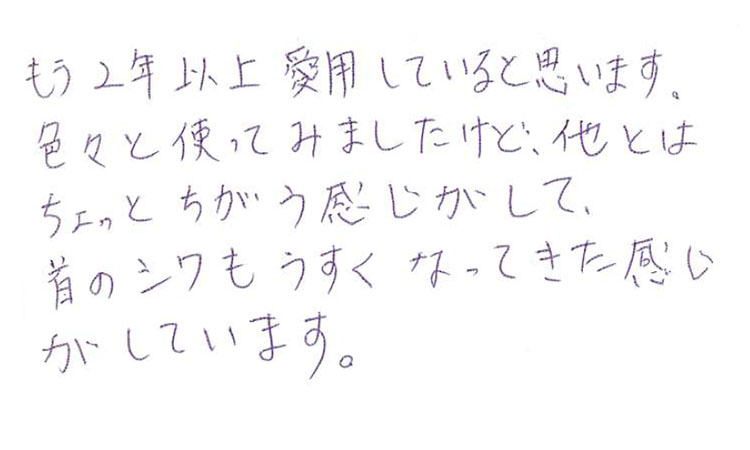 もう2年以上愛用していると思います。
色々と使ってみましたけど、他とは
ちょっとちがう感じがして、
首のシワもうすくなってきた感じ
がしています。